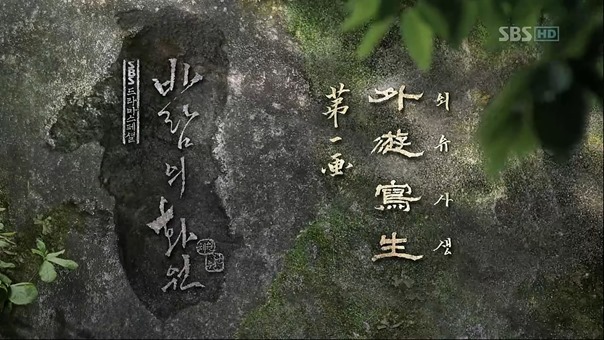 SBS HD
SBS 드라마스페셜
바람의 화원
第一画
外遊寫生
외유사생